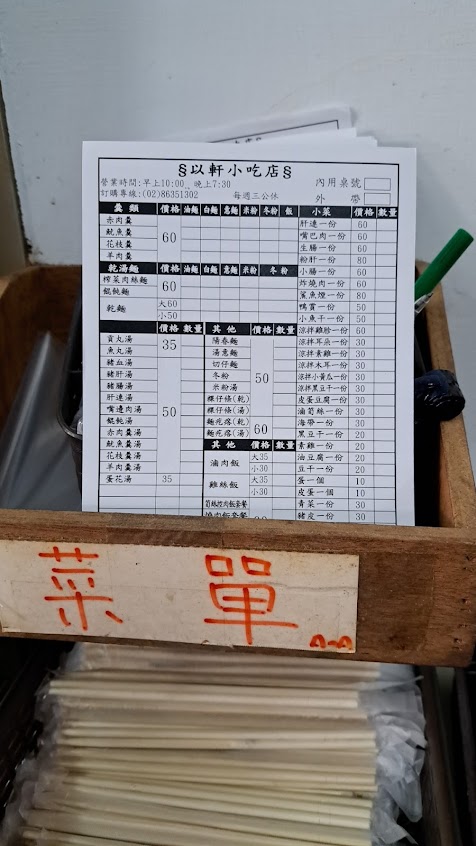 §以軒小吃店§
營業時間:早上10:00、晚上7:30
訂購專線:(02)86351302
每週三公休
內用桌號
外 帶
羹 類 價格 油麵 白麵 意麵 米粉 冬粉 飯
赤肉羹
魷魚羹
花枝羹
羊肉羹
60
乾湯麵 價格 油麵 白麵 意麵 米粉 冬 粉
榨菜肉絲麵
餛飩麵
60
乾麵
大60
小50
價格 數量
貢丸湯
魚丸湯
35
豬血湯
豬肝湯
豬腸湯
肝連湯
嘴邊肉湯
餛飩湯
赤肉羹湯
魷魚羹湯
花枝羹湯
羊肉羹湯
50
蛋花湯 35
其 他 價格 數量
陽春麵
湯意麵
切仔麵
冬粉
米粉湯
粿仔條(乾)
粿仔條(湯)
50
麵疙瘩(乾)
麵疙瘩(湯)
60
其 他 價格 數量
滷肉飯
大35
小30
雞絲飯
大35
小30
小菜 價格 數量
肝連一份 60
嘴巴肉一份 60
生腸一份 60
粉肝一份 80
小腸一份 60
炸燒肉一份 60
鯊魚煙一份 80
鴨賞一份 50
小魚干一份 50
涼拌雞胗一份 60
涼拌耳朵一份 30
涼拌素雞一份 30
涼拌木耳一份 30
涼拌小黃瓜一份 30
涼拌黑豆干一份 30
皮蛋豆腐一份 30
滷筍絲一份 30
海帶一份 30
黑豆干一份 20
素雞一份 20
油豆腐一份 20
豆干一份 20
蛋一個 10
皮蛋一個 10
青菜一份 30
豬皮一份 30
菜 單